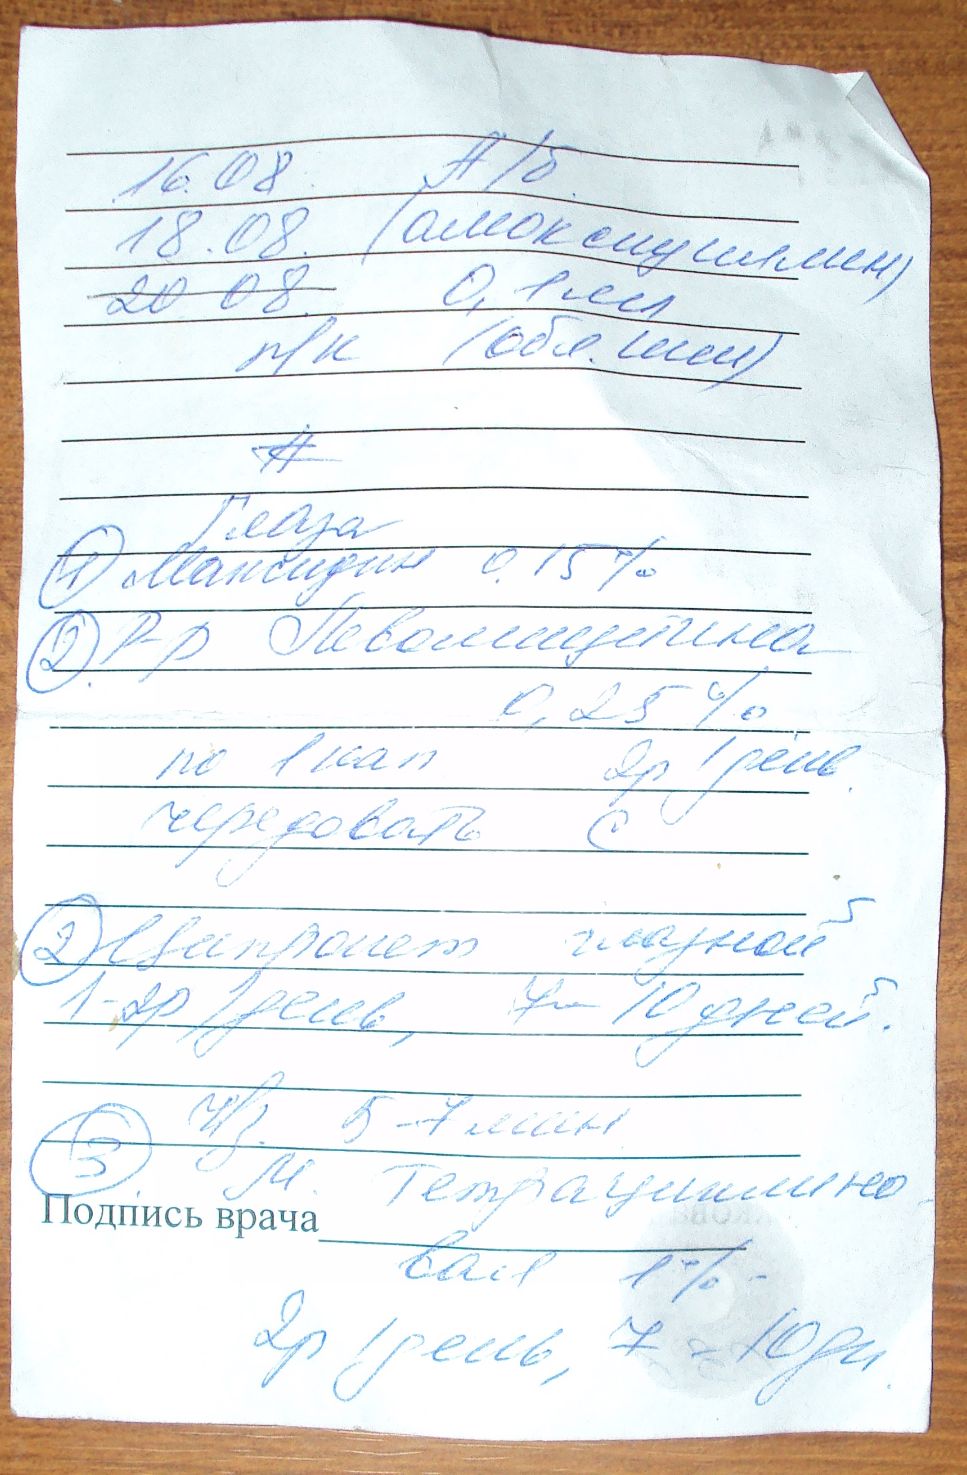 16.08. А/б.
18.08. (амоксициллин)
20 08. 0,1 мл
п/к (обл. шеи)
#
Глаза
① Максидин 0.15%
② Р-р Левомицетина
0,25%
по 1 кап 2р/день.
чередовать с
② Ципромет глазной
1-2р/день, 7-10 дней.
Ч/з. 5-7 мин
③ М. тетрациклино-
Подпись врача
вая 1%-
2р/день, 7-10 дн.